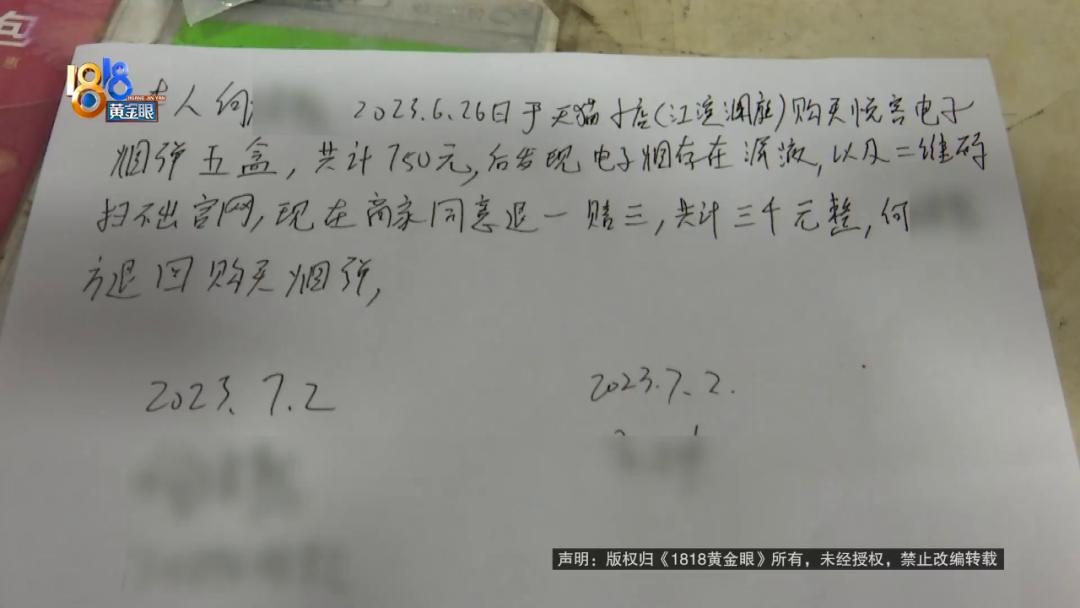 包
惠
1818
HUANG JIN YAN
黄金眼
本人何 2023.6.26日于天猫小店(江淀澜庭)购买悦客电子
烟弹五盒,共计750元,后发现电子烟存在漏液,以及二维码
扫不出官网,现在商家同意退一赔三,共计三千元整,何
方退回购买烟弹,
2023.7.2
2023.7.2.
声明:版权归《1818黄金眼》所有,未经授权,禁止改编转载